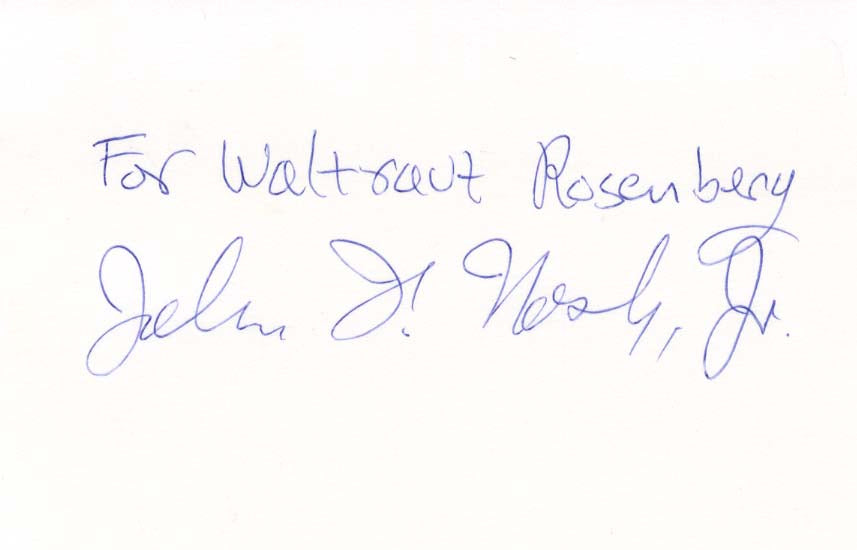 For Waltraut Rosenberg
John F. Nash, Jr.